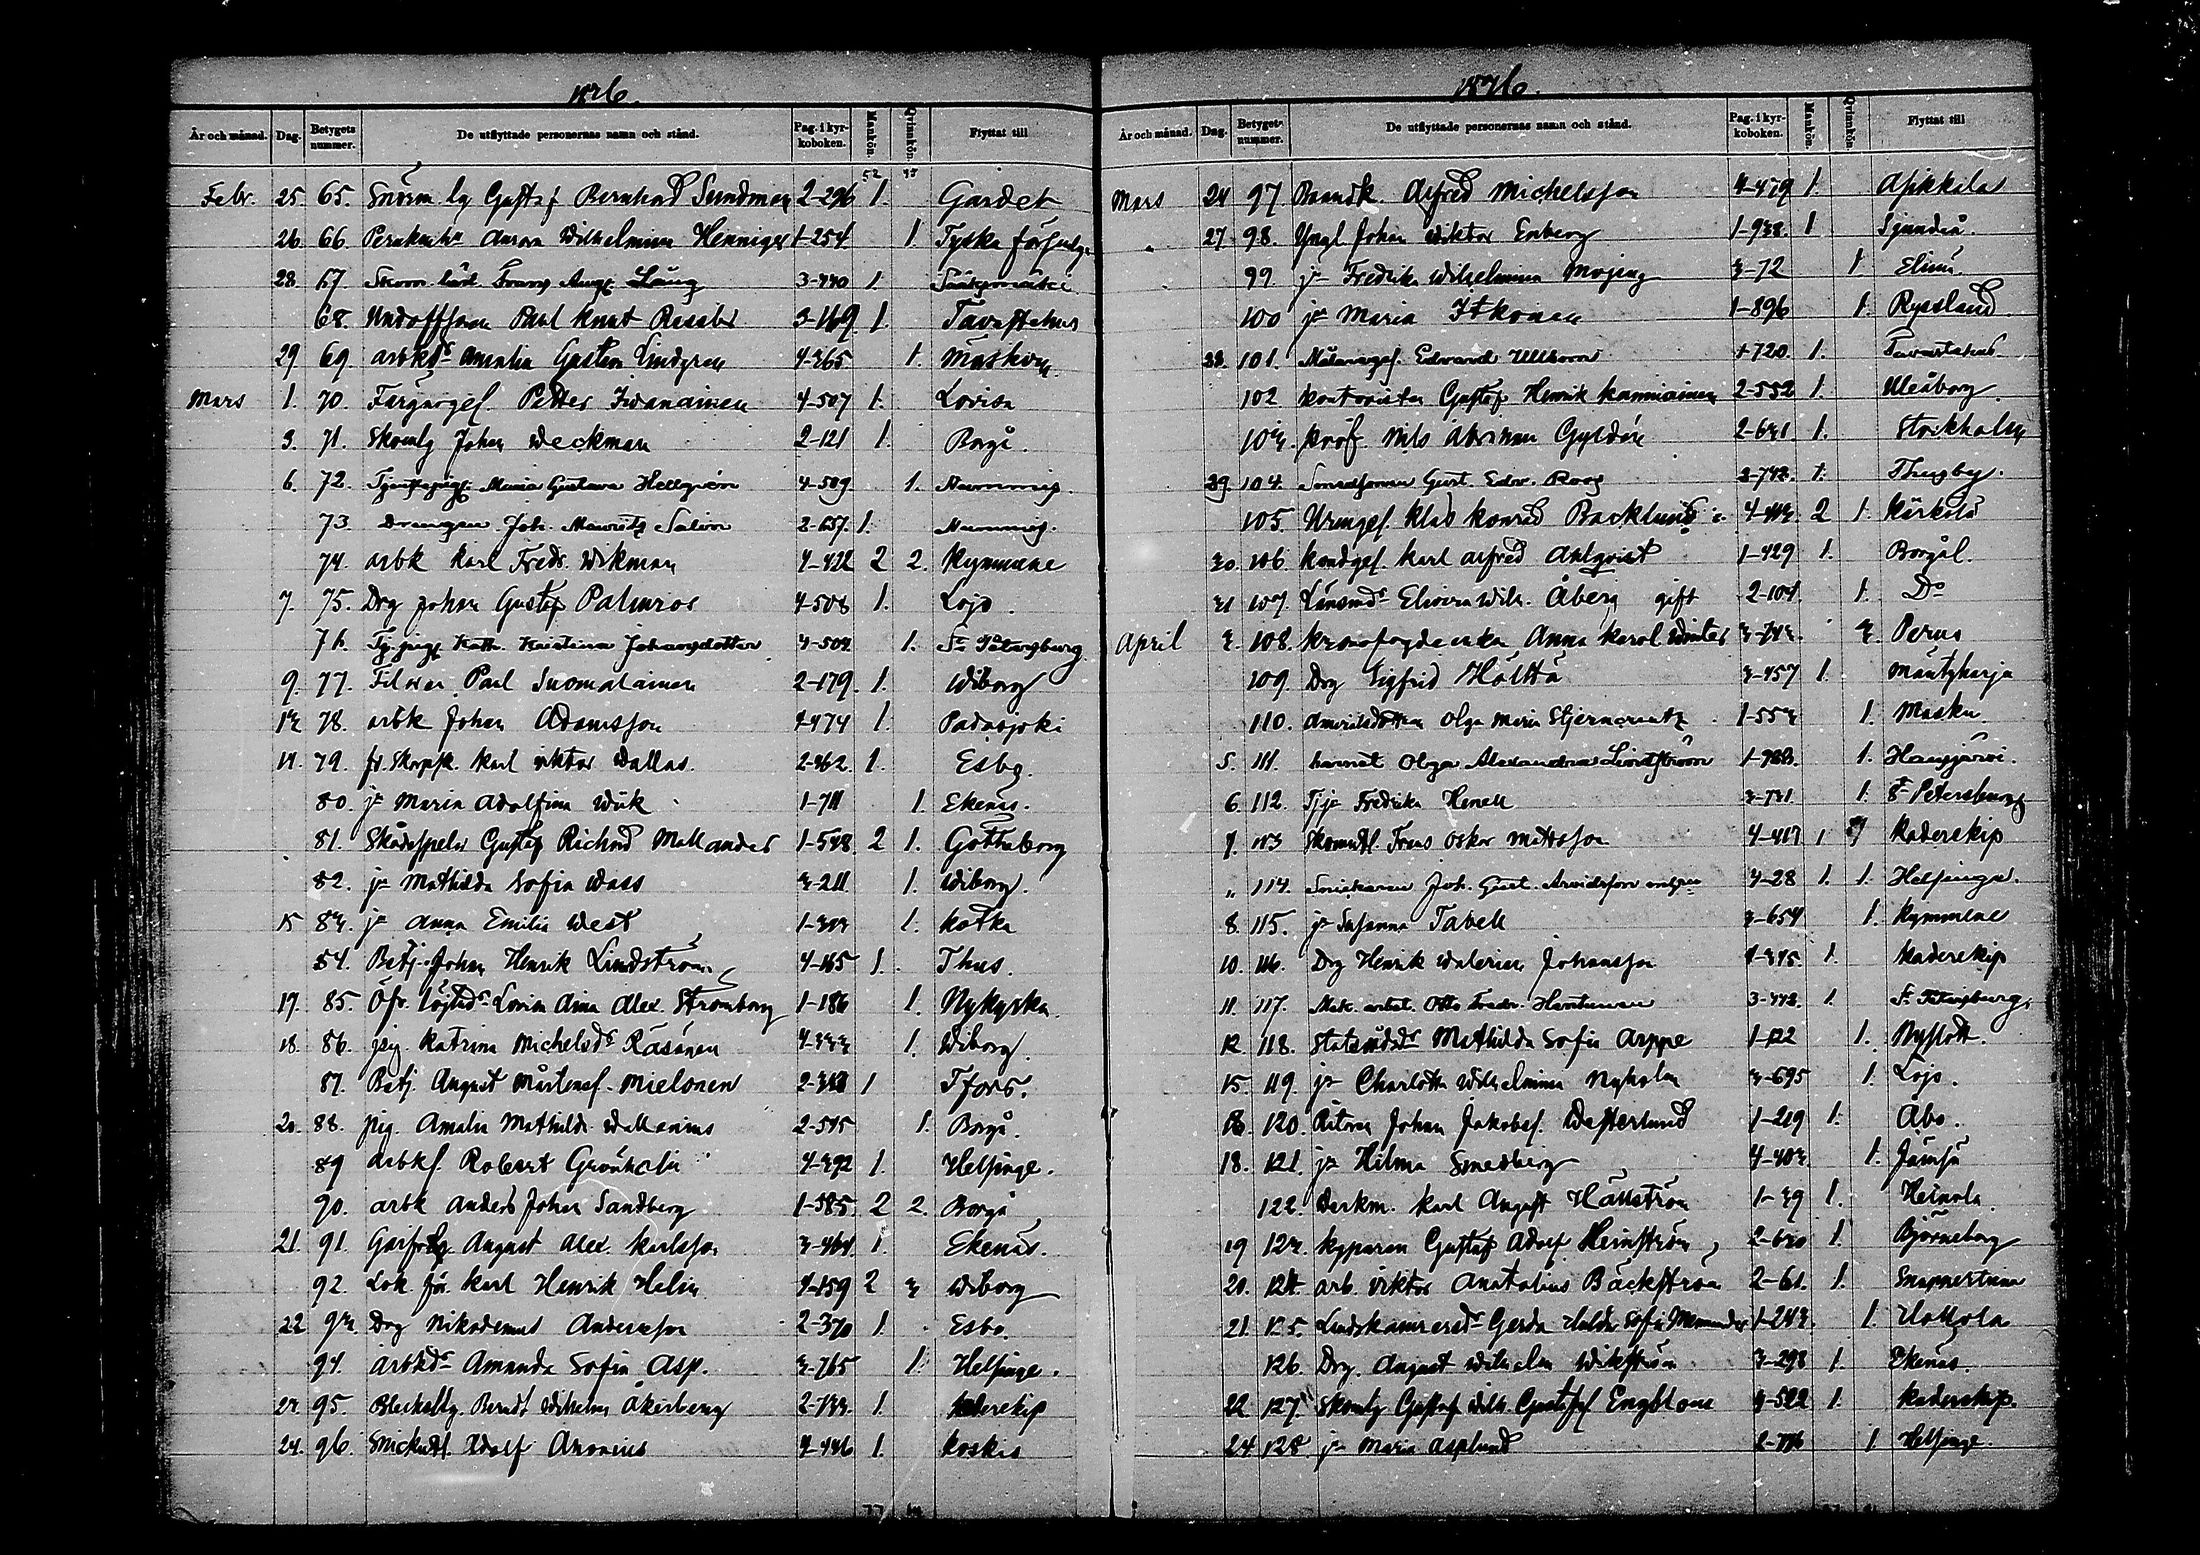 1876.
År och månad. Dag. Betygets nummer. De utflyttade personernas namn och stånd. Pag. i kyrkoboken. Mankön. Qvinnkön. Flyttat till
Febr. 25. 65. Gustaf Bernhard Sundman 2-296 1. Gardet
26. 66. Aurora Wilhelmina Henniger 1-254 1. Tyska församl.
28. 67. Frans Aug. Lång 3-770 1. Sääksmäki
68. Undoffseren Paul Knut Rossler 3-169 1. Tavastehus
29 69. arbkds Amalia Gustava Lindgren 4-365 1. Maskou
Mars 1. 70. Färgargel. Petter Iwanainen 4-507 1. Lovisa
3. 71. Skomlg Johan Weckman 2-121 1. Borgå.
6. 72. Maria Gustava Hellgrén 4-509 1. Nummis.
73. Drengen Joh. Mauritz Salin 2-657. 1. Nummis.
74. arbk Karl Fredr. Wikman 4-422 2 2. Kymmene
7. 75. Drg Johan Gustaf Palmros 4-508 1. Lojo.
76. Tj. pig. Kath. Kristina Johansdotter 3-509 1. St Petersburg
9. 77. Filaren Paul Suomalainen 2-179. 1. Wiborg
13 78. arbk Johan Adamsson 4-474 1. Padasjoki
14. 79. fr. Skarpsk. Karl Viktor Wallas. 2-462. 1. Esbo.
80. jgf Maria Adolfina Wiik 1-711 1. Ekenäs.
81. Skådespelar Gustaf Richard Mallander 1-598 2 1. Götheborg
82. jgf Mathilda Sofia Wass 3-211 1. Wiborg.
15 83. jgf Anna Emilia West 1-303 1. Kotka
84. Betj. Johan Henrik Lindström 4-165 1. Thus.
17. 85. Lovisa Aina Alex. Stromborg 1-186 1. Nykyrka.
18. 86. pig Katrina Michelsdr Räsänen 4-333 1. Wiborg.
87. Betj. August Mårtensf. Mielonen 2-318 1 Tfors.
20. 88. pig. Amalia Mathilda Wallenius 2-545 1. Borgå.
89 arbkf. Robert Grönholm 4-392 1. Helsinge.
90. arbk Anders Johan Sandberg 1-385 2 2. Borgå
21. 91. August Alex. Karlsson 3-464 1. Ekenäs.
92. Lok. för. Karl Henrik Helin 4-159 2 3 Wiborg
22 93. Drg Nikodemus Andersson 2-370 1. Esbo.
94. Arbkds Amanda Sofia Asp. 3-765 1. Helsinge.
23. 95. Berndt Wilhelm Åkerberg 2-733. 1. Kaderskip
24. 96. Adolf Anonius 4-446 1. Koskis
1876.
År och månad. Dag. Betygets nummer. De utflyttade personernas namn och stånd. Pag. i kyrkoboken. Mankön. Qvinnkön. Flyttat till
Mars 24 97 Alfred Michelsson 4-479 1. Asikkala
„ 27 98. Yngl Johan Wiktor Enberg 1-938 1 Sjundeå.
99. jgf Fredrika Wilhelmina Mojing 3-72 1 Elimä.
100 jgf Maria Itkonen 1-896 1. Ryssland.
28. 101. Målaregel. Edvard Ullbom 1-720 1. Tavastehus.
102 Kontorister Gustaf Henrik 2-552 1. Uleåborg.
103. prof. Nils Abraham Gyldén 2-631 1. Stockholm
29. 104. Gust. Edv. Roos 3-742. 1. Thusby.
105. Urmgel. Klas Konrad Backlund 4-113 2 1. Kärkölä
30. 106 Kondgel. Karl Alfred Ahlqvist 1-429 1. Borgå l.
31 107. Elvira Wilh. Åberg gift 2-104 1. Do
April 3. 108. kronofogdeenka Anna Karol. Winter 3-743 3. Perno
109. Drg Sigfrid Hölttä 3-457 1. Mäntyharju
110. Olga Maria Stjerncreutz 1-553 1. Masku
5. 111. Olga Alexandra Lindström 1-788. 1. Hausjärvi.
6. 112. Tj jgf Fredrika Henell 3-731 1. St Petersburg
7. 113 Frans Oskar Mattsson 4-417 1 Kaderskip
„ 114. Snickaren Joh. Gust. Arvidsson 4-28 1. 1. Helsinge.
8. 115. jgf Susanna Tabell 3-654 1. Kymmene
10. 116. Drg Henrik Walerian Johansson 4-375. 1. Kaderskip
11. 117. Otto Fredr. 3-773. 1. St Petersburg.
12. 118. Statsrådsdr Mathilda Sofia Arppe 1-122 1. Nyslott.
15. 119. jgf Charlotta Wilhelmina Nyholm 3-695 1. Lojo.
18. 120. Johan Jakobsf. Westerlund 1-219 1. Åbo.
18. 121. jgf Hilma Smedberg 4-403. 1. Jämsä
122. Karl August Hällström 1-39 1. Heinola.
19 123. Kyparen Gustaf Adolf Heinström 2-630 1. Björneborg
20. 124. arb. Viktor Anatolius Bäckström 2-61. 1. Snappertuna
21. 125. Gerda Hulda Sofia 1-243. 1. Hollola
126. Drg. August Wilhelm Wikström 3-298 1. Ekenäs.
22. 127. Skomlg Gustaf Wilh. Gustafsf Engblom 4-522 1. Kaderskip.
24. 128. jgf Maria Asplund 2-776 1 Helsinge.